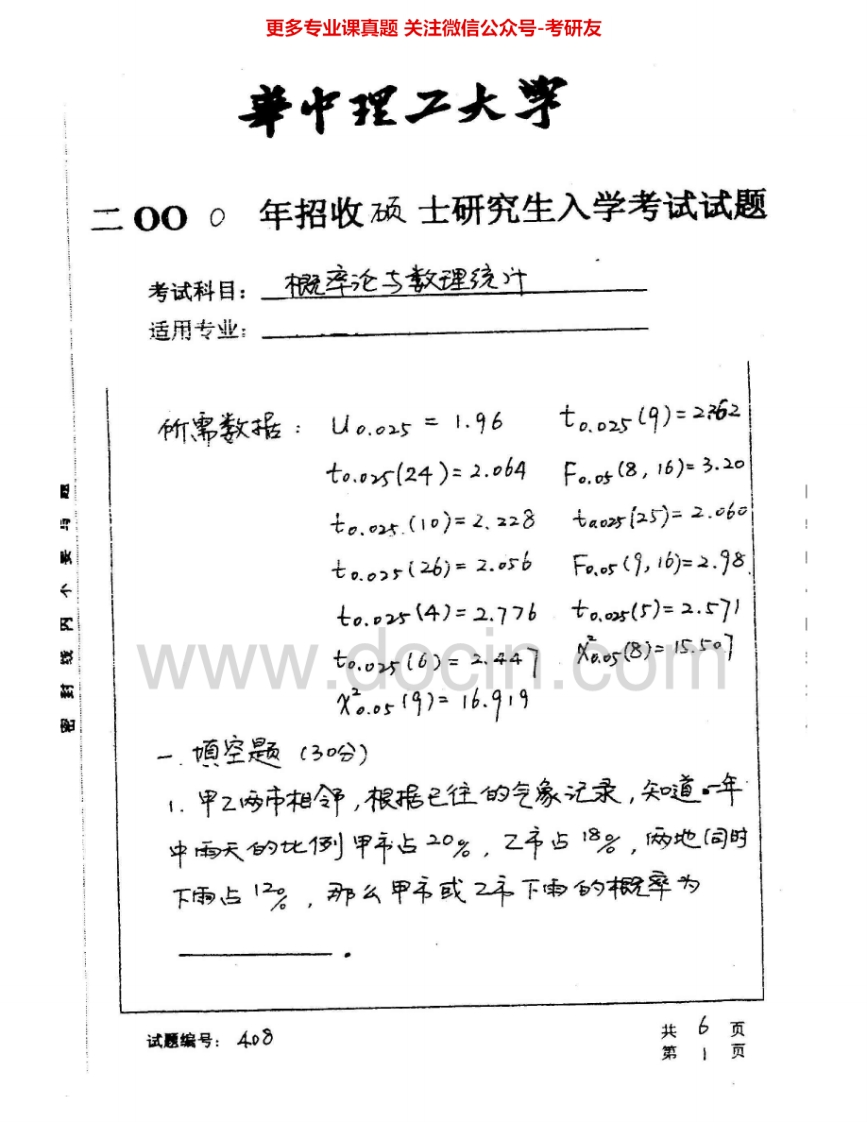 更多专业课真题 关注微信公众号-考研友
華中理工大学
二OO0 年招收硕士研究生入学考试试题
考试科目：概率论与数理统计
适用专业：
所需数据： u₀.₀₂₅ = 1.96 t₀.₀₂₅(9)=2.262
t₀.₀₂₅(24)=2.064 F₀.₀₅(8,16)=3.20
t₀.₀₂₅(10)=2.228 t₀.₀₂₅(25)=2.060
t₀.₀₂₅(26)=2.056 F₀.₀₅(9,16)=2.98
t₀.₀₂₅(4)=2.776 t₀.₀₂₅(5)=2.571
t₀.₀₂₅(6)=2.447 χ²₀.₀₅(8)=15.507
χ²₀.₀₅(9)=16.919
www.docin.com
一. 填空题 (30分)
1. 甲乙两市相邻,根据已往的气象记录,知道一年
中雨天的比例甲市占20%, 乙市占18%, 两地同时
下雨占12%, 那么甲市或乙市下雨的概率为
________.
密封线内不要写题
试题编号：408
共 6 页
第 1 页